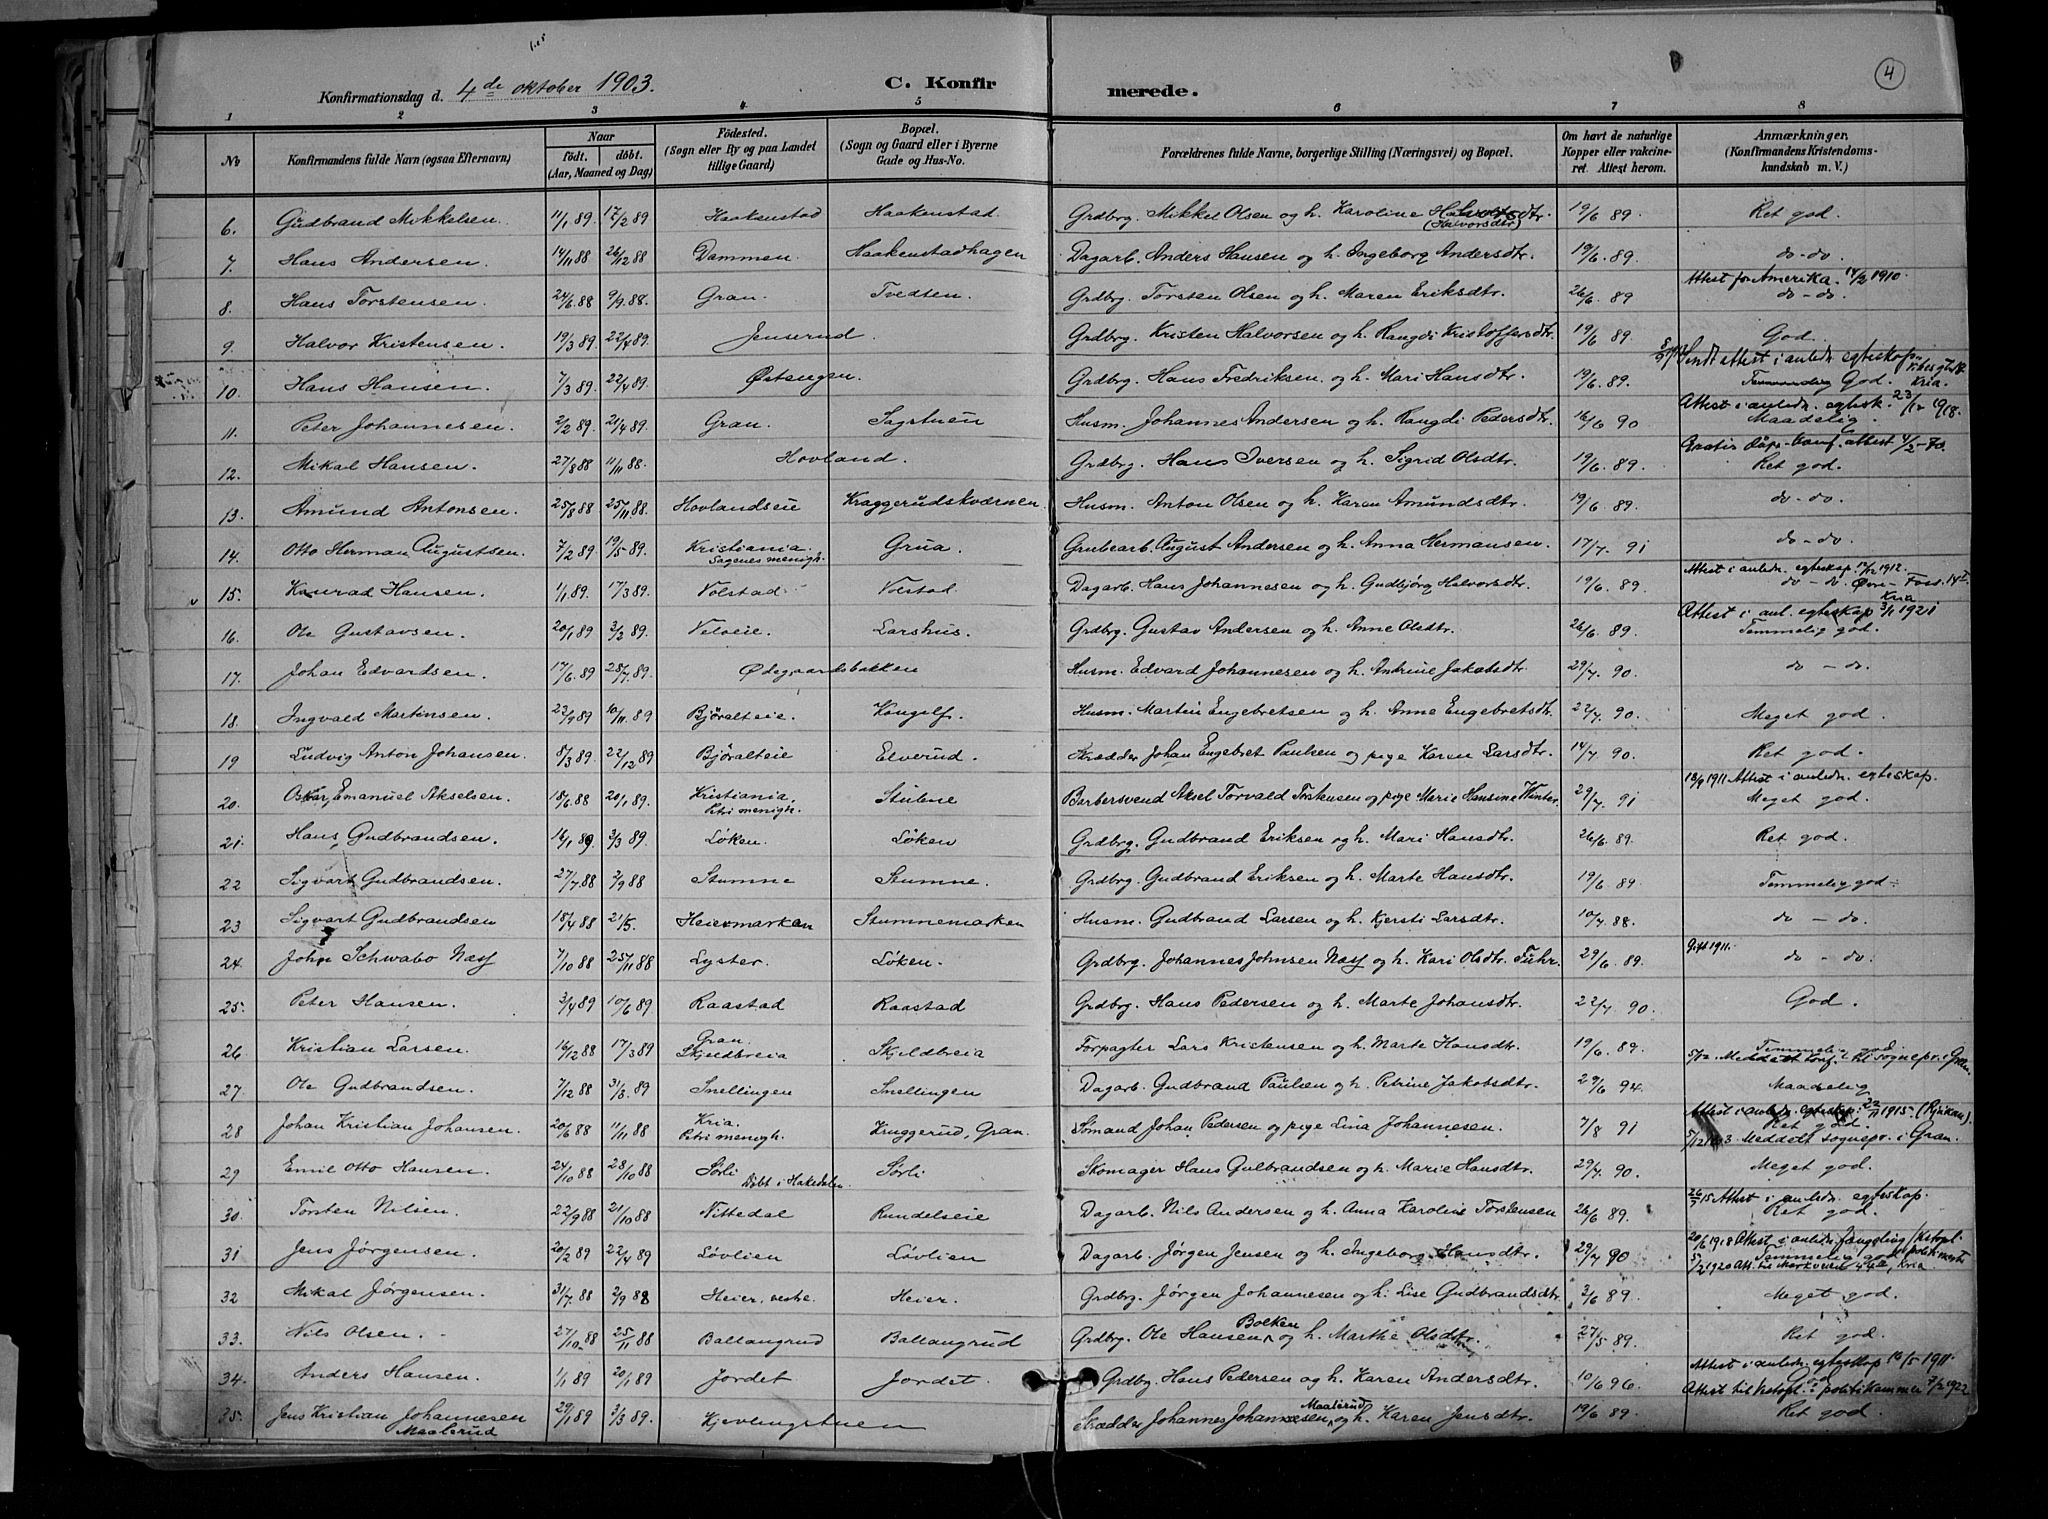 4
Konfirmationsdag d. 4de oktober 1903.
C. Konfirmerede.
1 2 3 4 5 6 7 8
No
Konfirmandens fulde Navn (ogsaa Efternavn)
Naar
födt. döbt.
(Aar, Maaned og Dag)
Födested.
(Sogn eller By og paa Landet
tillige Gaard)
Bopæl.
(Sogn og Gaard eller i Byerne
Gade og Hus-No.
Forældrenes fulde Navne, borgerlige Stilling (Næringsvei) og Bopæl.
Om havt de naturlige
Kopper eller vakcine-
ret Attest herom.
Anmærkninger.
(Konfirmandens Kristendoms-
kundskab m. V.)
6. Gudbrand Mikkelsen. 11/1 89. 17/2 89 Haakenstad Haakenstad. Grdbrg. Mikkel Olsen og h. Karoline 19/6 89. Ret god.
(Halvorsdtr)
7. Hans Andersen. 14/11 88 26/12 88 Dammen. Haakenstadhagen Dagarb. Anders Hansen og h. Ingeborg Andersdtr. 19/6. 89. do - do.
Attest for Amerika. 14/2 1910.
8. Hans Torstensen. 24/6 88 9/9 88. Gran. Tvedten. Grdbrg. Torsten Olsen og h. Maren Eriksdtr. 26/6. 89 do - do.
9. Halvor Kristensen. 19/3 89. 22/4 89. Jenserud. Grdbrg. Kristen Halvorsen og h. Rangdi Kristoffersdtr. 19/6 89. God.
Sendt attest i anledn. egteskap.
10. Hans Hansen. 7/3 89. 22/4 89. Østengen. Grdbrg. Hans Fredriksen. og h. Mari Hansdtr. 19/6 89. God. Kria.
Attest i anledn. egtesk. 23/12 1918.
11. Peter Johannesen. 2/2 89. 21/4 89. Gran. Sagstuen Husm. Johannes Andersen og h. Rangdi Pedersdtr. 16/6 90 Maadelig.
Gratis Daps-konf. attest 4/2-70.
12. Mikal Hansen. 27/8 88 11/11 88. Hovland. Grdbrg. Hans Iversen og h. Sigrid Olsdtr. 19/6. 89. Ret god.
13. Amund Antonsen. 25/8 88 25/11 88. Hovlandseie Kraggerudskværnen Husm. Anton Olsen og h. Karen Amundsdtr. 19/6. 89. do - do.
14. Otto Herman Augustsen. 7/2 89. 19/5 89. Kristiania. Grua. Grubearb. August Andersen og h. Anna Hermansen. 17/7. 91 do - do.
Sagenes menigh.
Attest i anledn. egteskap. 14/2 1912.
15. Konrad Hansen. 1/1 89. 17/3 89. Volstad Volstad. Dagarb. Hans Johannesen og h. Gudbjørg Halvorsdtr. 19/6. 89 do - do.
Kria
Attest i anl. egteskap 3/1 1921
16. Ole Gustavsen. 20/1 89 3/2 89. Velveie. Larshus. Grdbrg. Gustav Andersen og h. Anne Olsdtr. 26/6. 89. Temmelig god.
17. Johan Edvardsen. 17/6. 89 28/7. 89. Ødegaardsbakken Husm. Edvard Johannesen og h. Andrine Jakobsdtr. 29/7. 90 do - do.
18. Ingvald Martinsen. 23/9 89 10/11 89 Björalteie. Kongelf. Husm. Martin Engebretsen og h. Anne Engebretsdtr. 22/7. 90. Meget god.
19 Ludvig Anton Johansen. 8/3 89. 22/12 89 Björalteie Elverud. Skrædder Johan Engebret Paulsen og pige Karen Larsdtr. 14/7. 90. Ret god.
18/9 1911 Attest i anledn. egteskap.
20. Oskar Emanuel Akselsen. 18/6. 88 20/1 89. Kristiania, Stubene Barbersvend Aksel Torvald Torstensen og pige Marie Hansine Winter. 29/7. 91 Meget god.
Petri menigh.
21. Hans Gudbrandsen. 16/1 89 3/3 89. Löken. Löken Grdbrg. Gudbrand Eriksen og h. Mari Hansdtr. 26/6. 89. Ret god.
22 Sigvart Gudbrandsen. 27/7 88 2/9 88 Stumne Stumne. Grdbrg. Gudbrand Eriksen og h. Marte Hansdtr. 19/6. 89. Temmelig god.
23 Sigvart Gudbrandsen 18/4 88 21/5. Heiermarken Stumnemarken Husm. Gudbrand Larsen og h. Kjersti Larsdtr. 10/7. 88. do - do.
Gift 1911.
24. John Schwabo Næss 7/10 88 25/11 88 Lyster. Löken. Grdbrg. Johannes Johnsen Næss og h. Kari Olsdtr. Fuhr. 29/6. 89. do - do.
25. Peter Hansen. 3/4 89 10/6 89 Raastad Raastad Grdbrg. Hans Pedersen og h. Marte Johansdtr. 22/7 90. God.
Gran.
26 Kristian Larsen. 16/12 88 17/3 89 Skjeldbreia Skjeldbreia Forpagter Lars Kristensen og h. Marte Hansdtr. 19/6. 89. Temmelig god.
Meddelt konf. til sognepr. i Gran.
27. Ole Gudbrandsen. 7/12 88 31/3 89 Snellingen Snellingen Dagarb. Gudbrand Paulsen og h. Petrine Jakobsdtr. 29/6 94. Maadelig
Attest i anledn. egteskap: 22/11 1915. (Rjukan).
28 Johan Kristian Johansen. 20/6 88 11/11 88 Kria. Kraggerud, Gran. Sømand Johan Pedersen og pige Lina Johannesen. 7/8 91 Ret god.
Petri menigh.
Meddelt sognepr. i Gran.
29. Emil Otto Hansen. 24/10 88 28/10 88 Sørli Sørli Skomager Hans Gulbrandsen og h. Marie Hansdtr. 29/7. 90. Meget god.
Döbt i Hakedalen.
26/7 15 Attest i anledn. egteskap.
30. Torsten Nilsen. 22/9 88 21/10 88 Nittedal Rundelseie Dagarb. Nils Andersen og h. Anna Karoline Torstensen 26/6 89. Ret god.
20/6 1918 Attest i anledn.
31 Jens Jørgensen. 20/2 89 22/4 89 Lövlien Lövlien Dagarb. Jørgen Jensen og h. Ingeborg Hansdtr. 29/7 90 Temmelig god
5/2 1920 Att. til Markveien 44a, Kria
32 Mikal Jörgensen. 31/7. 88 2/9 88 Heier, vestre. Heier. Grdbrg. Jørgen Johannesen og h. Lise Gudbrandsdtr. 3/6 89. Meget god.
33. Nils Olsen. 27/10 88 25/11 88 Ballangrud Ballangrud Grdbrg. Ole Hansen Bolken og h. Marthe Olsdtr. 27/5 89. Ret god.
Attest i anledn. egteskap 16/5 1911.
34. Anders Hansen. 1/1 89 20/1 89 Jordet Jordet. Grdbrg. Hans Pedersen og h. Karen Andersdtr. 10/6 96. God
Attest til politikammer 7/2 1922
35. Jens Kristian Johannesen 29/1 89 3/3 89. Kjevlingstuen Skrædder Johannes Johannesen Maalerud og h. Karen Jensdtr. 19/6 89. Ret god.
Maalerud